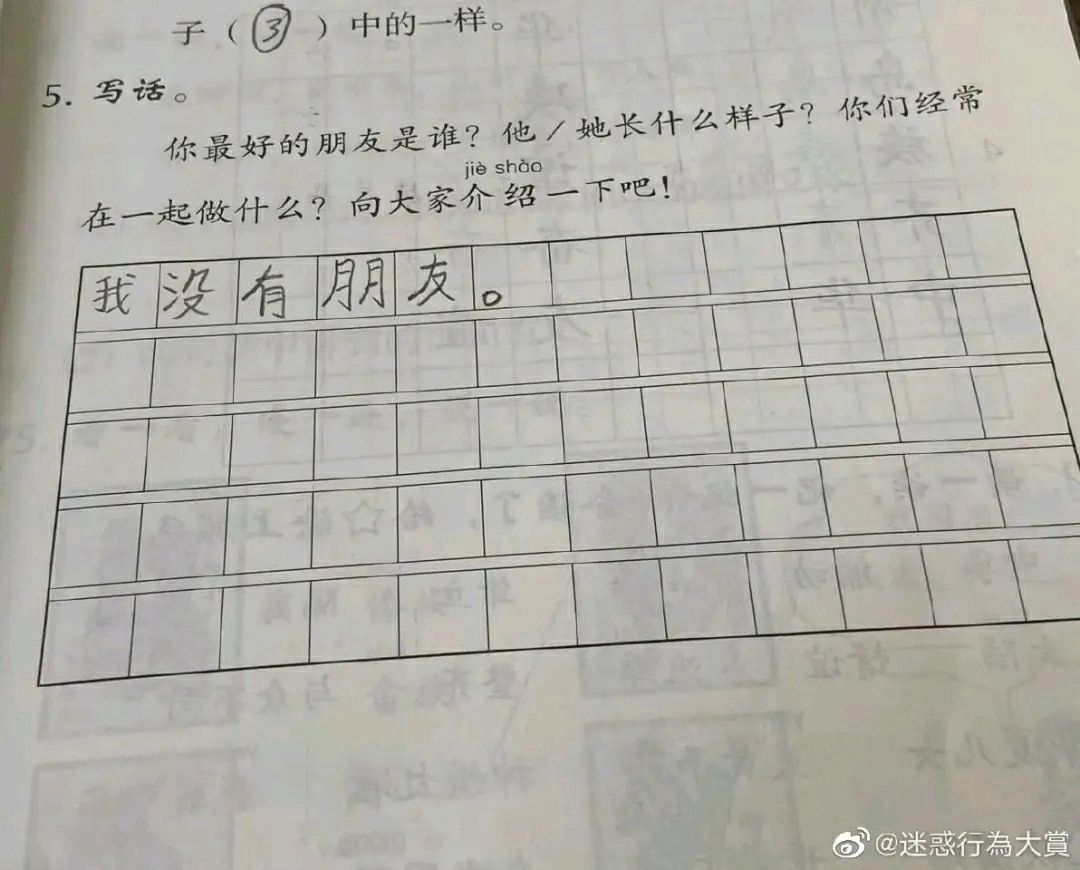 子（③）中的一样。
5. 写话。
你最好的朋友是谁？他／她长什么样子？你们经常
jiè shào
在一起做什么？向大家介绍一下吧！
我没有朋友。
@迷惑行為大賞